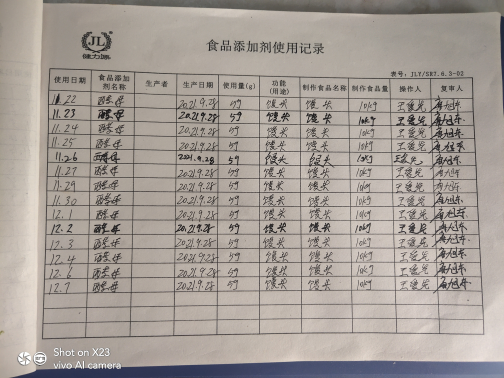 JL
健力源
食品添加剂使用记录
表号:JLY/SR7.6.3-02
使用日期 食品添加剂名称 生产者 生产日期 使用量(g) 功能(用途) 制作食品名称 制作食品量 操作人 复审人
11.22 酵母 2021.9.28 5g 馒头 馒头 10kg
11.23 酵母 2021.9.28 5g 馒头 馒头 10kg
11.24 酵母 2021.9.28 5g 馒头 馒头 10kg
11.25 酵母 2021.9.28 5g 馒头 馒头 10kg
11.26 酵母 2021.9.28 5g 馒头 馒头 10kg
11.27 酵母 2021.9.28 5g 馒头 馒头 10kg
11.29 酵母 2021.9.28 5g 馒头 馒头 10kg
11.30 酵母 2021.9.28 5g 馒头 馒头 10kg
12.1 酵母 2021.9.28 5g 馒头 馒头 10kg
12.2 酵母 2021.9.28 5g 馒头 馒头 10kg
12.3 酵母 2021.9.28 5g 馒头 馒头 10kg
12.4 酵母 2021.9.28 5g 馒头 馒头 10kg
12.6 酵母 2021.9.28 5g 馒头 馒头 10kg
12.7 酵母 2021.9.28 5g 馒头 馒头 10kg
Shot on X23
vivo AI camera